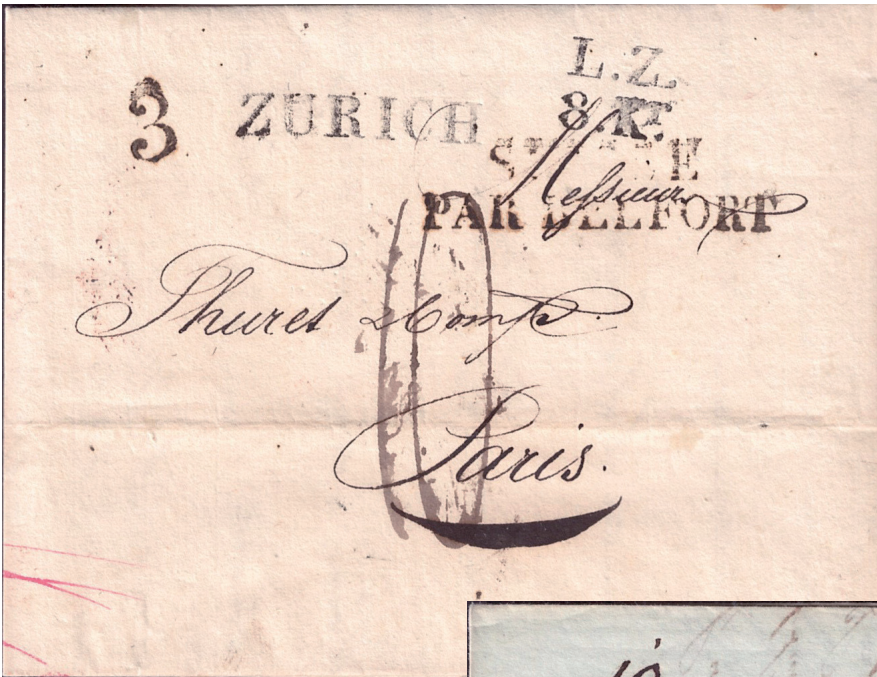 L.Z.
3 ZURICH 8.Kr.
SUISSE
PAR BELFORT
Messieurs
Thuret & Comp.
10
Paris.
10